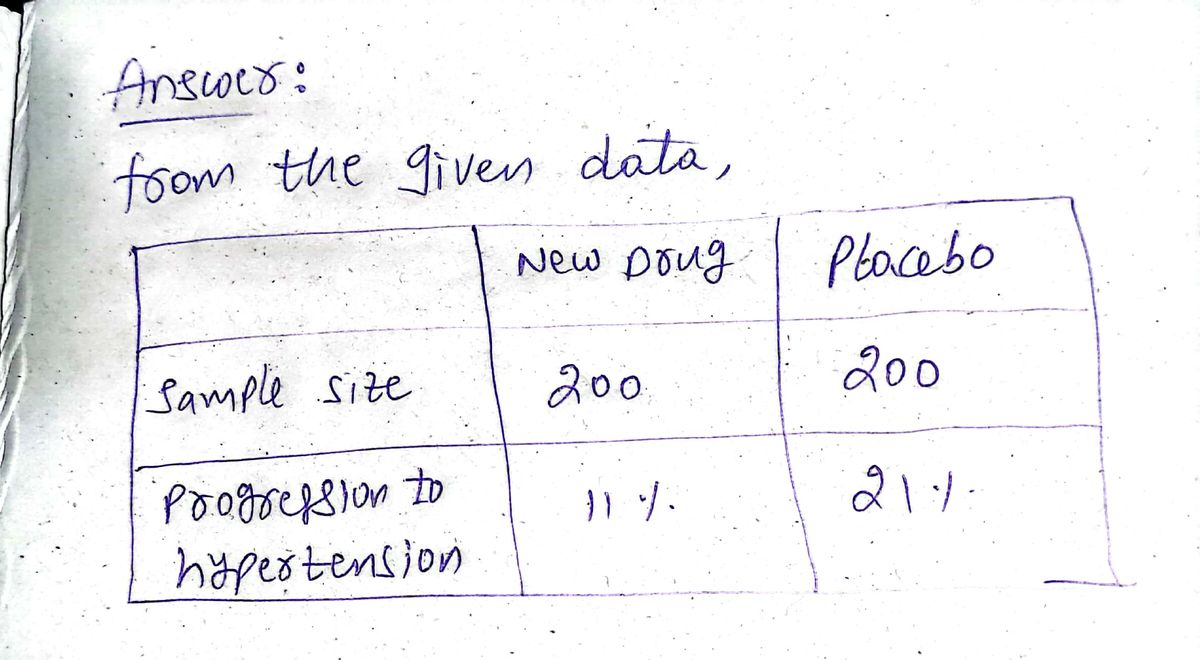 Answer:
from the given data,
New Drug Placebo
Sample size 200 200
Progression to 11% 21%
hypertension